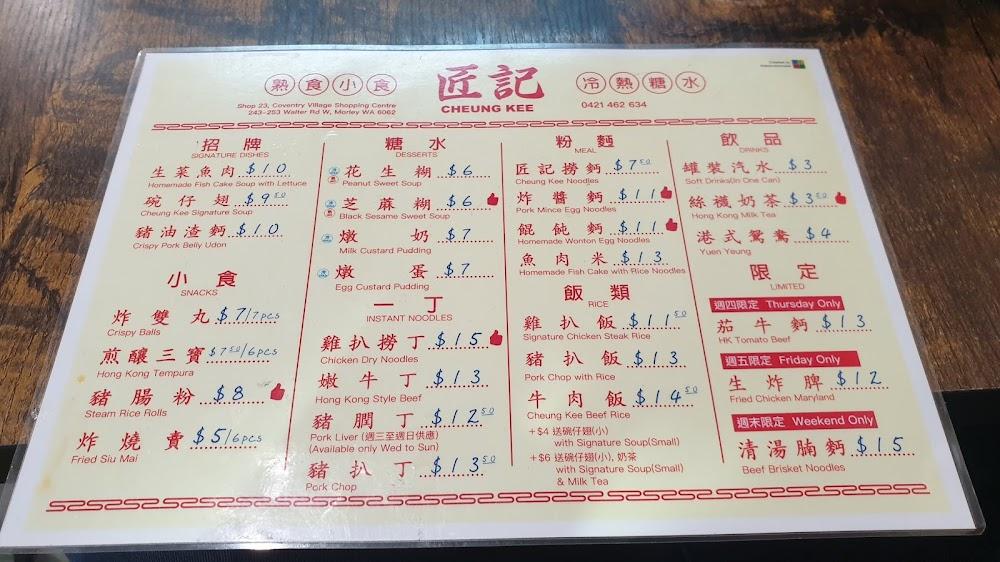 熟食小食
匠記
CHEUNG KEE
冷熱糖水
Shop 23, Coventry Village Shopping Centre
243-253 Walter Rd W, Morley WA 6062
0421 462 634
招牌
SIGNATURE DISHES
生菜魚肉 $10
Homemade Fish Cake Soup with Lettuce
碗仔翅 $9.50
Cheung Kee Signature Soup
豬油渣麪 $10
Crispy Pork Belly Udon
小食
SNACKS
炸雙丸 $7/7pcs
Crispy Balls
煎釀三寶 $7.50/6pcs
Hong Kong Tempura
豬腸粉 $8
Steam Rice Rolls
炸燒賣 $5/6pcs
Fried Siu Mai
糖水
DESSERTS
花生糊 $6
Peanut Sweet Soup
芝蔴糊 $6
Black Sesame Sweet Soup
燉奶 $7
Milk Custard Pudding
燉蛋 $7
Egg Custard Pudding
一丁
INSTANT NOODLES
雞扒撈丁 $15
Chicken Dry Noodles
嫩牛丁 $13
Hong Kong Style Beef
豬膶丁 $12.50
Pork Liver (週三至週日供應)
(Available only Wed to Sun)
豬扒丁 $13.50
Pork Chop
粉麵
MEAL
匠記撈麪 $7.50
Cheung Kee Noodles
炸醬麪 $11
Pork Mince Egg Noodles
餛飩麪 $11
Homemade Wonton Egg Noodles
魚肉米 $13
Homemade Fish Cake with Rice Noodles
飯類
RICE
雞扒飯 $11.50
Signature Chicken Steak Rice
豬扒飯 $13
Pork Chop with Rice
牛肉飯 $14.50
Cheung Kee Beef Rice
+$4 送碗仔翅(小)
with Signature Soup(Small)
+$6 送碗仔翅(小), 奶茶
with Signature Soup(Small)
& Milk Tea
飲品
DRINKS
罐裝汽水 $3
Soft Drinks(in One Can)
絲襪奶茶 $3.50
Hong Kong Milk Tea
港式鴛鴦 $4
Yuen Yeung
限定
LIMITED
週四限定 Thursday Only
茄牛麪 $13
HK Tomato Beef
週五限定 Friday Only
生炸脾 $12
Fried Chicken Maryland
週末限定 Weekend Only
清湯腩麪 $15
Beef Brisket Noodles